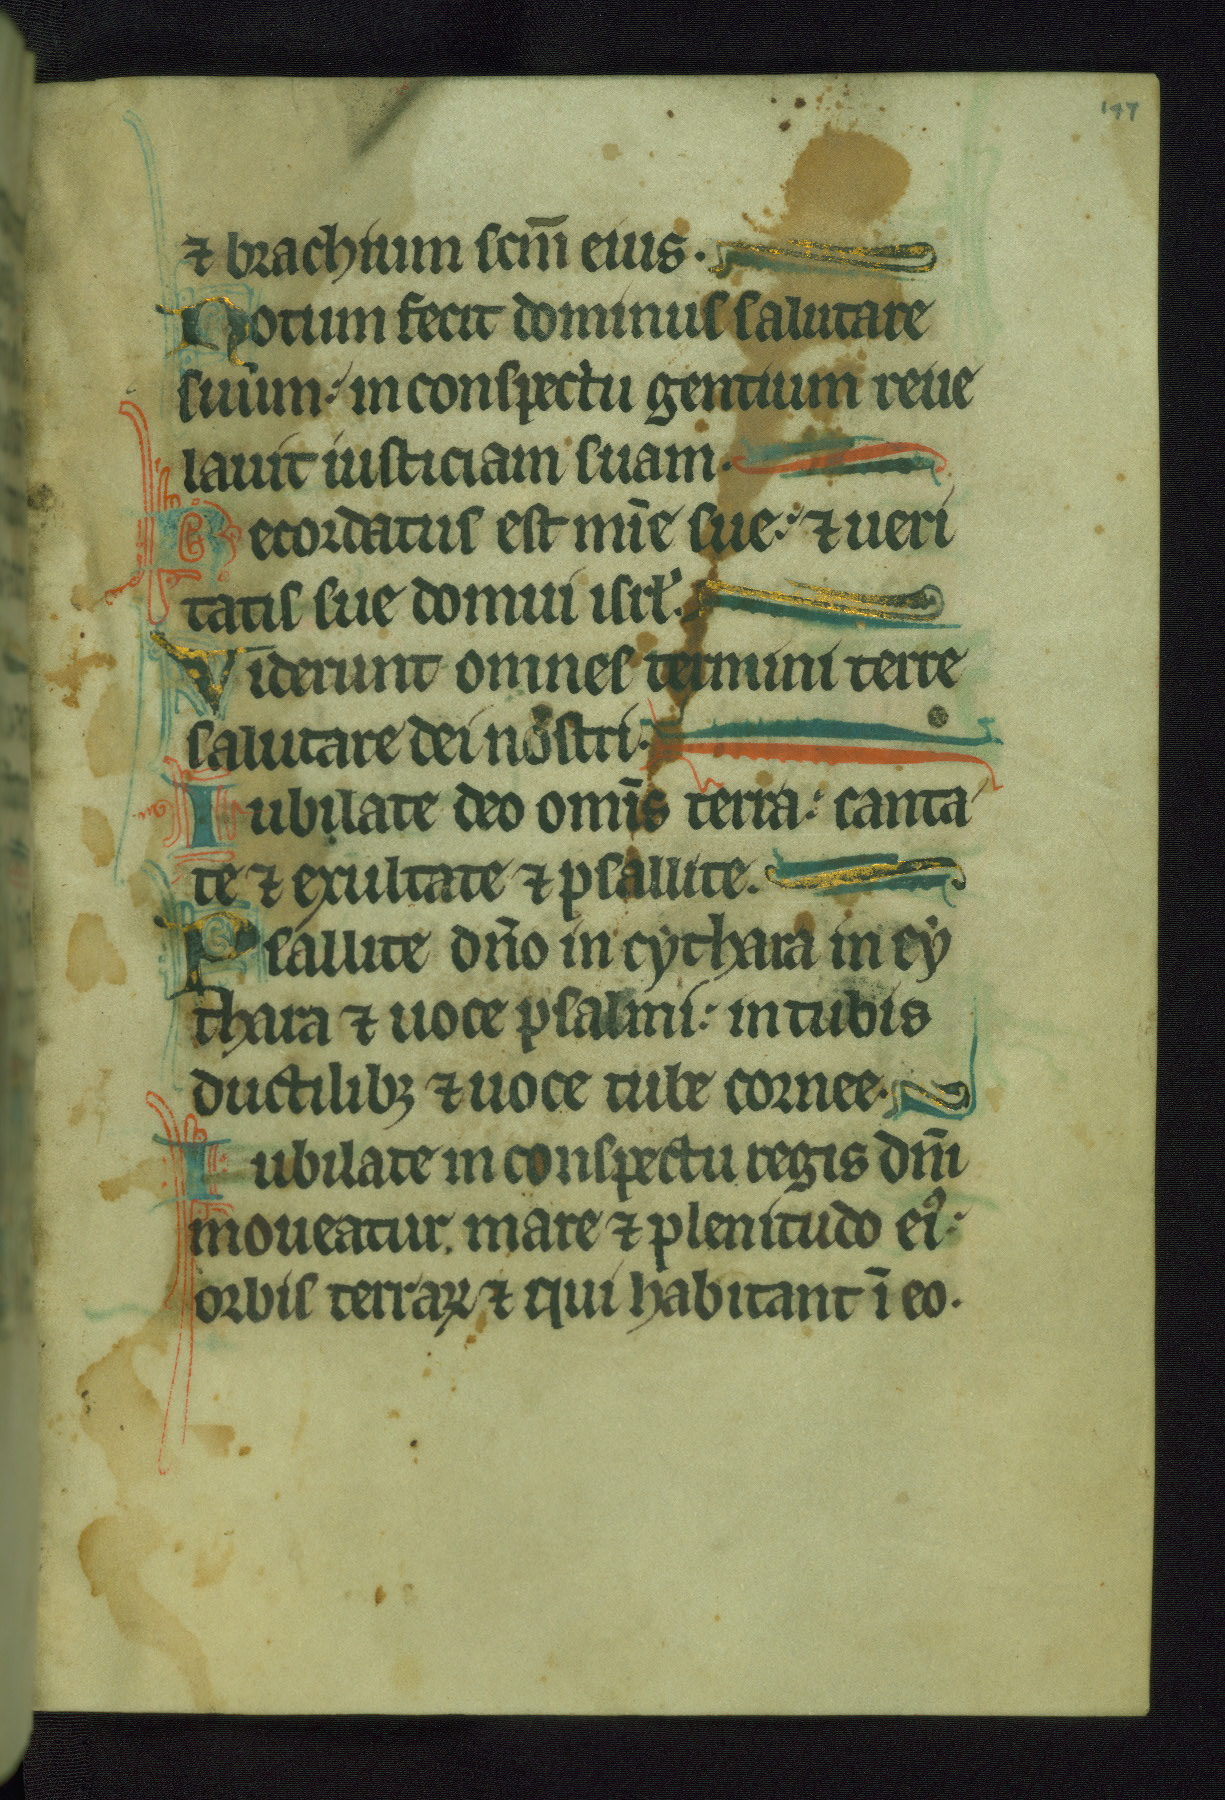 147
⁊ brachium scm̄ eius.
Notum fecit dominus salutare
suum: in conspectu gentium reue
lauit iusticiam suam.
Recordatus est mīe sue: ⁊ ueri
tatis sue domui isrl̓.
Viderunt omnes termini terre
salutare dei nostri.
Iubilate deo omīs terra: canta
te ⁊ exultate ⁊ psallite.
Psallite dn̄o in cẏthara in cẏ
thara ⁊ uoce psalmi: in tubis
ductilibꝫ ⁊ uoce tube cornee.
Iubilate in conspectu regis dn̄i
moueatur mare ⁊ plenitudo eiꝰ:
orbis terraꝝ ⁊ qui habitant ī eo.